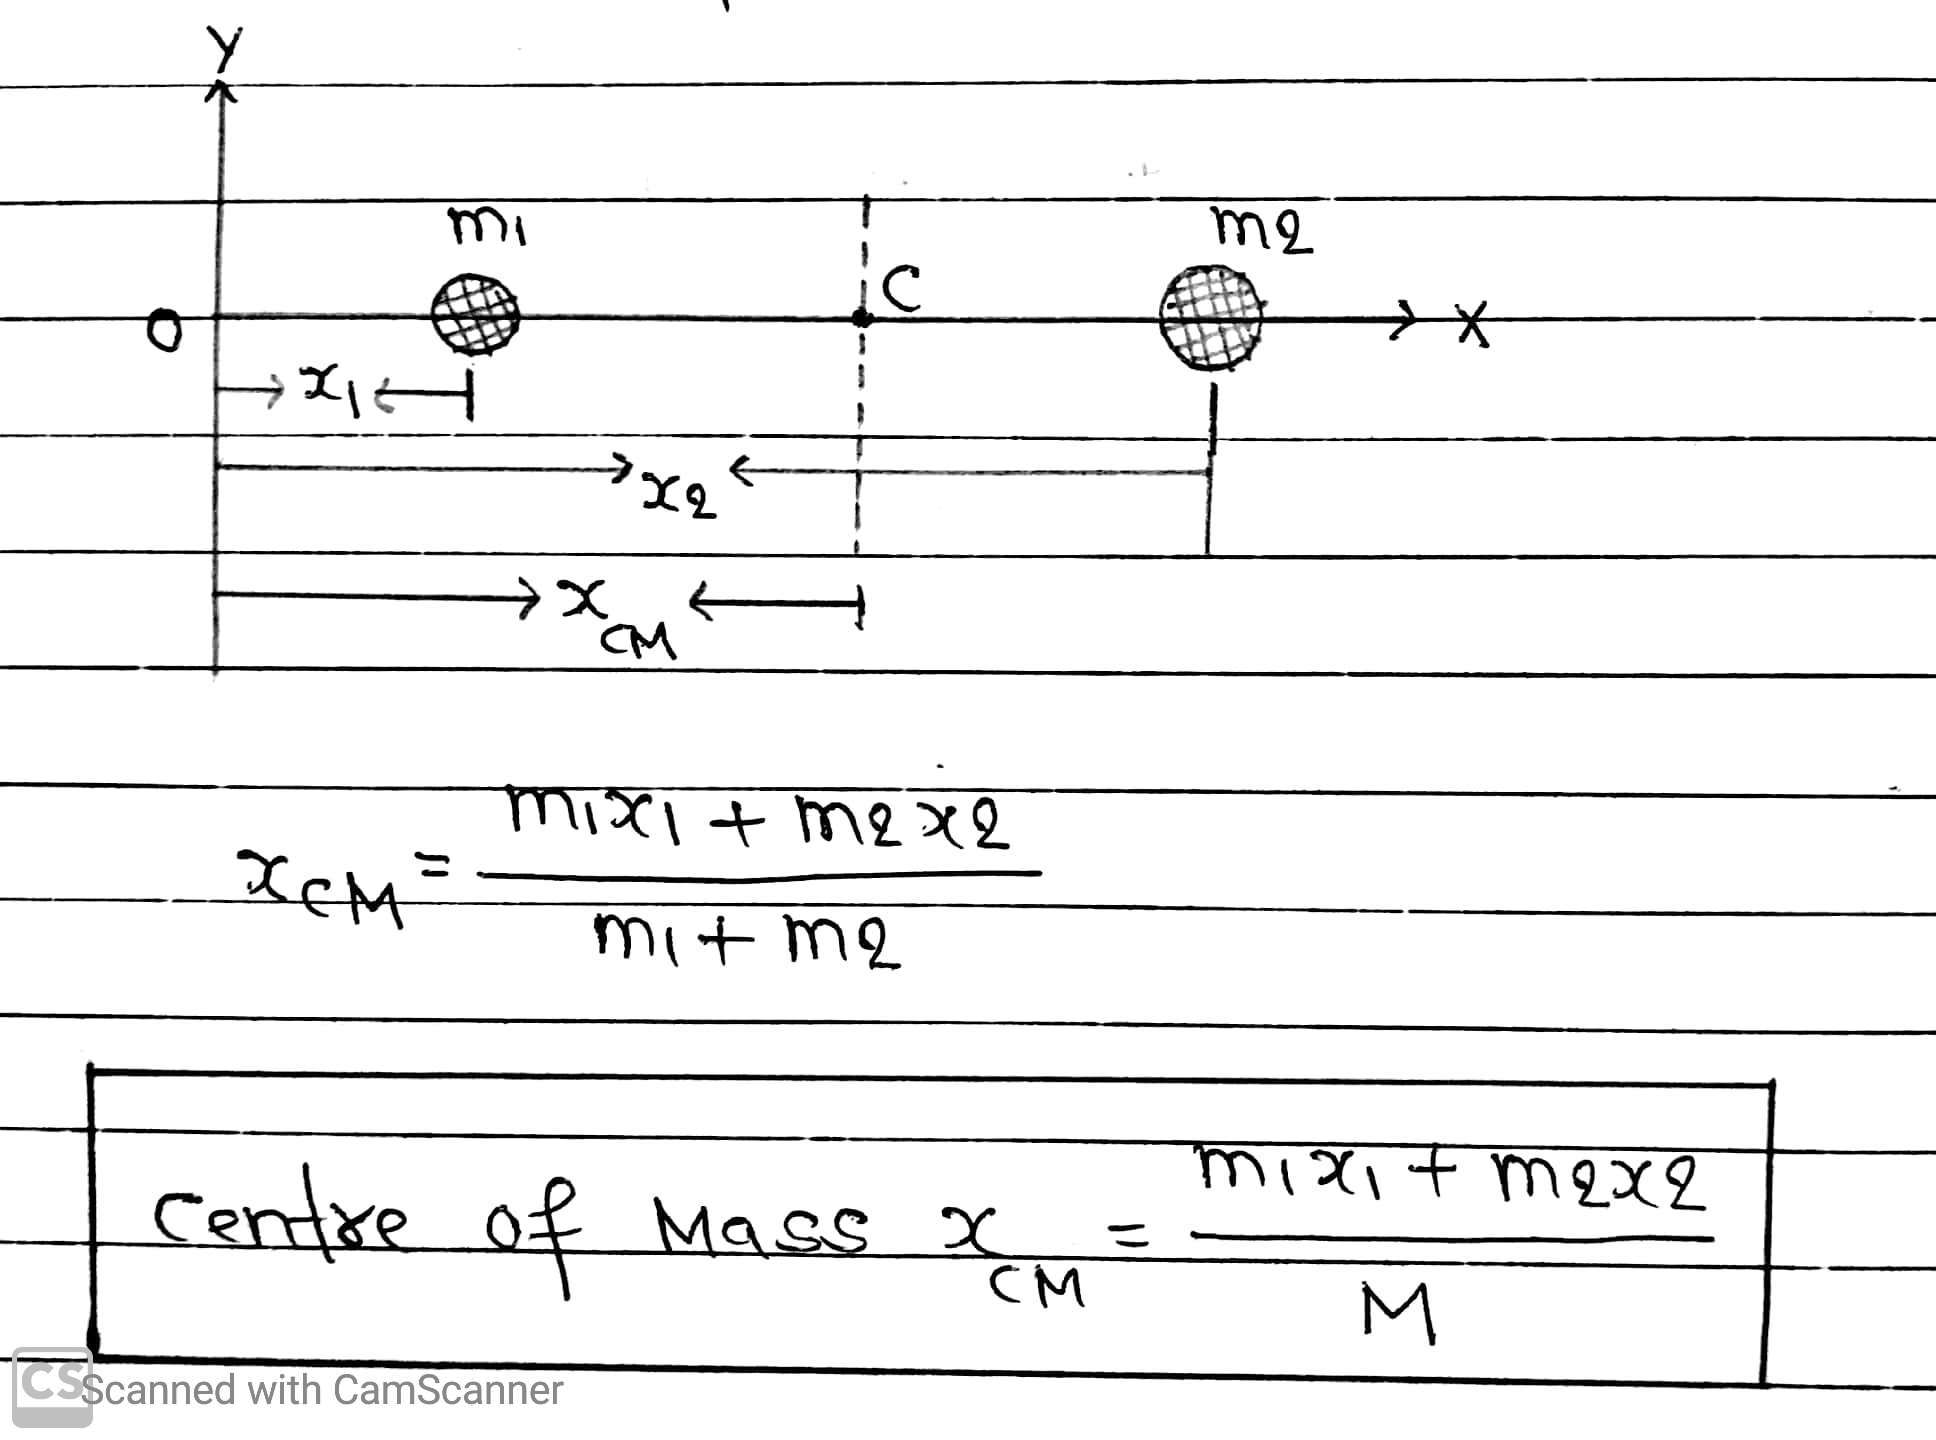 Y
m1 m2
C
O X
x1
x2
xCM
xCM = m1x1 + m2x2
m1 + m2
Centre of Mass xCM = m1x1 + m2x2
M
CS Scanned with CamScanner